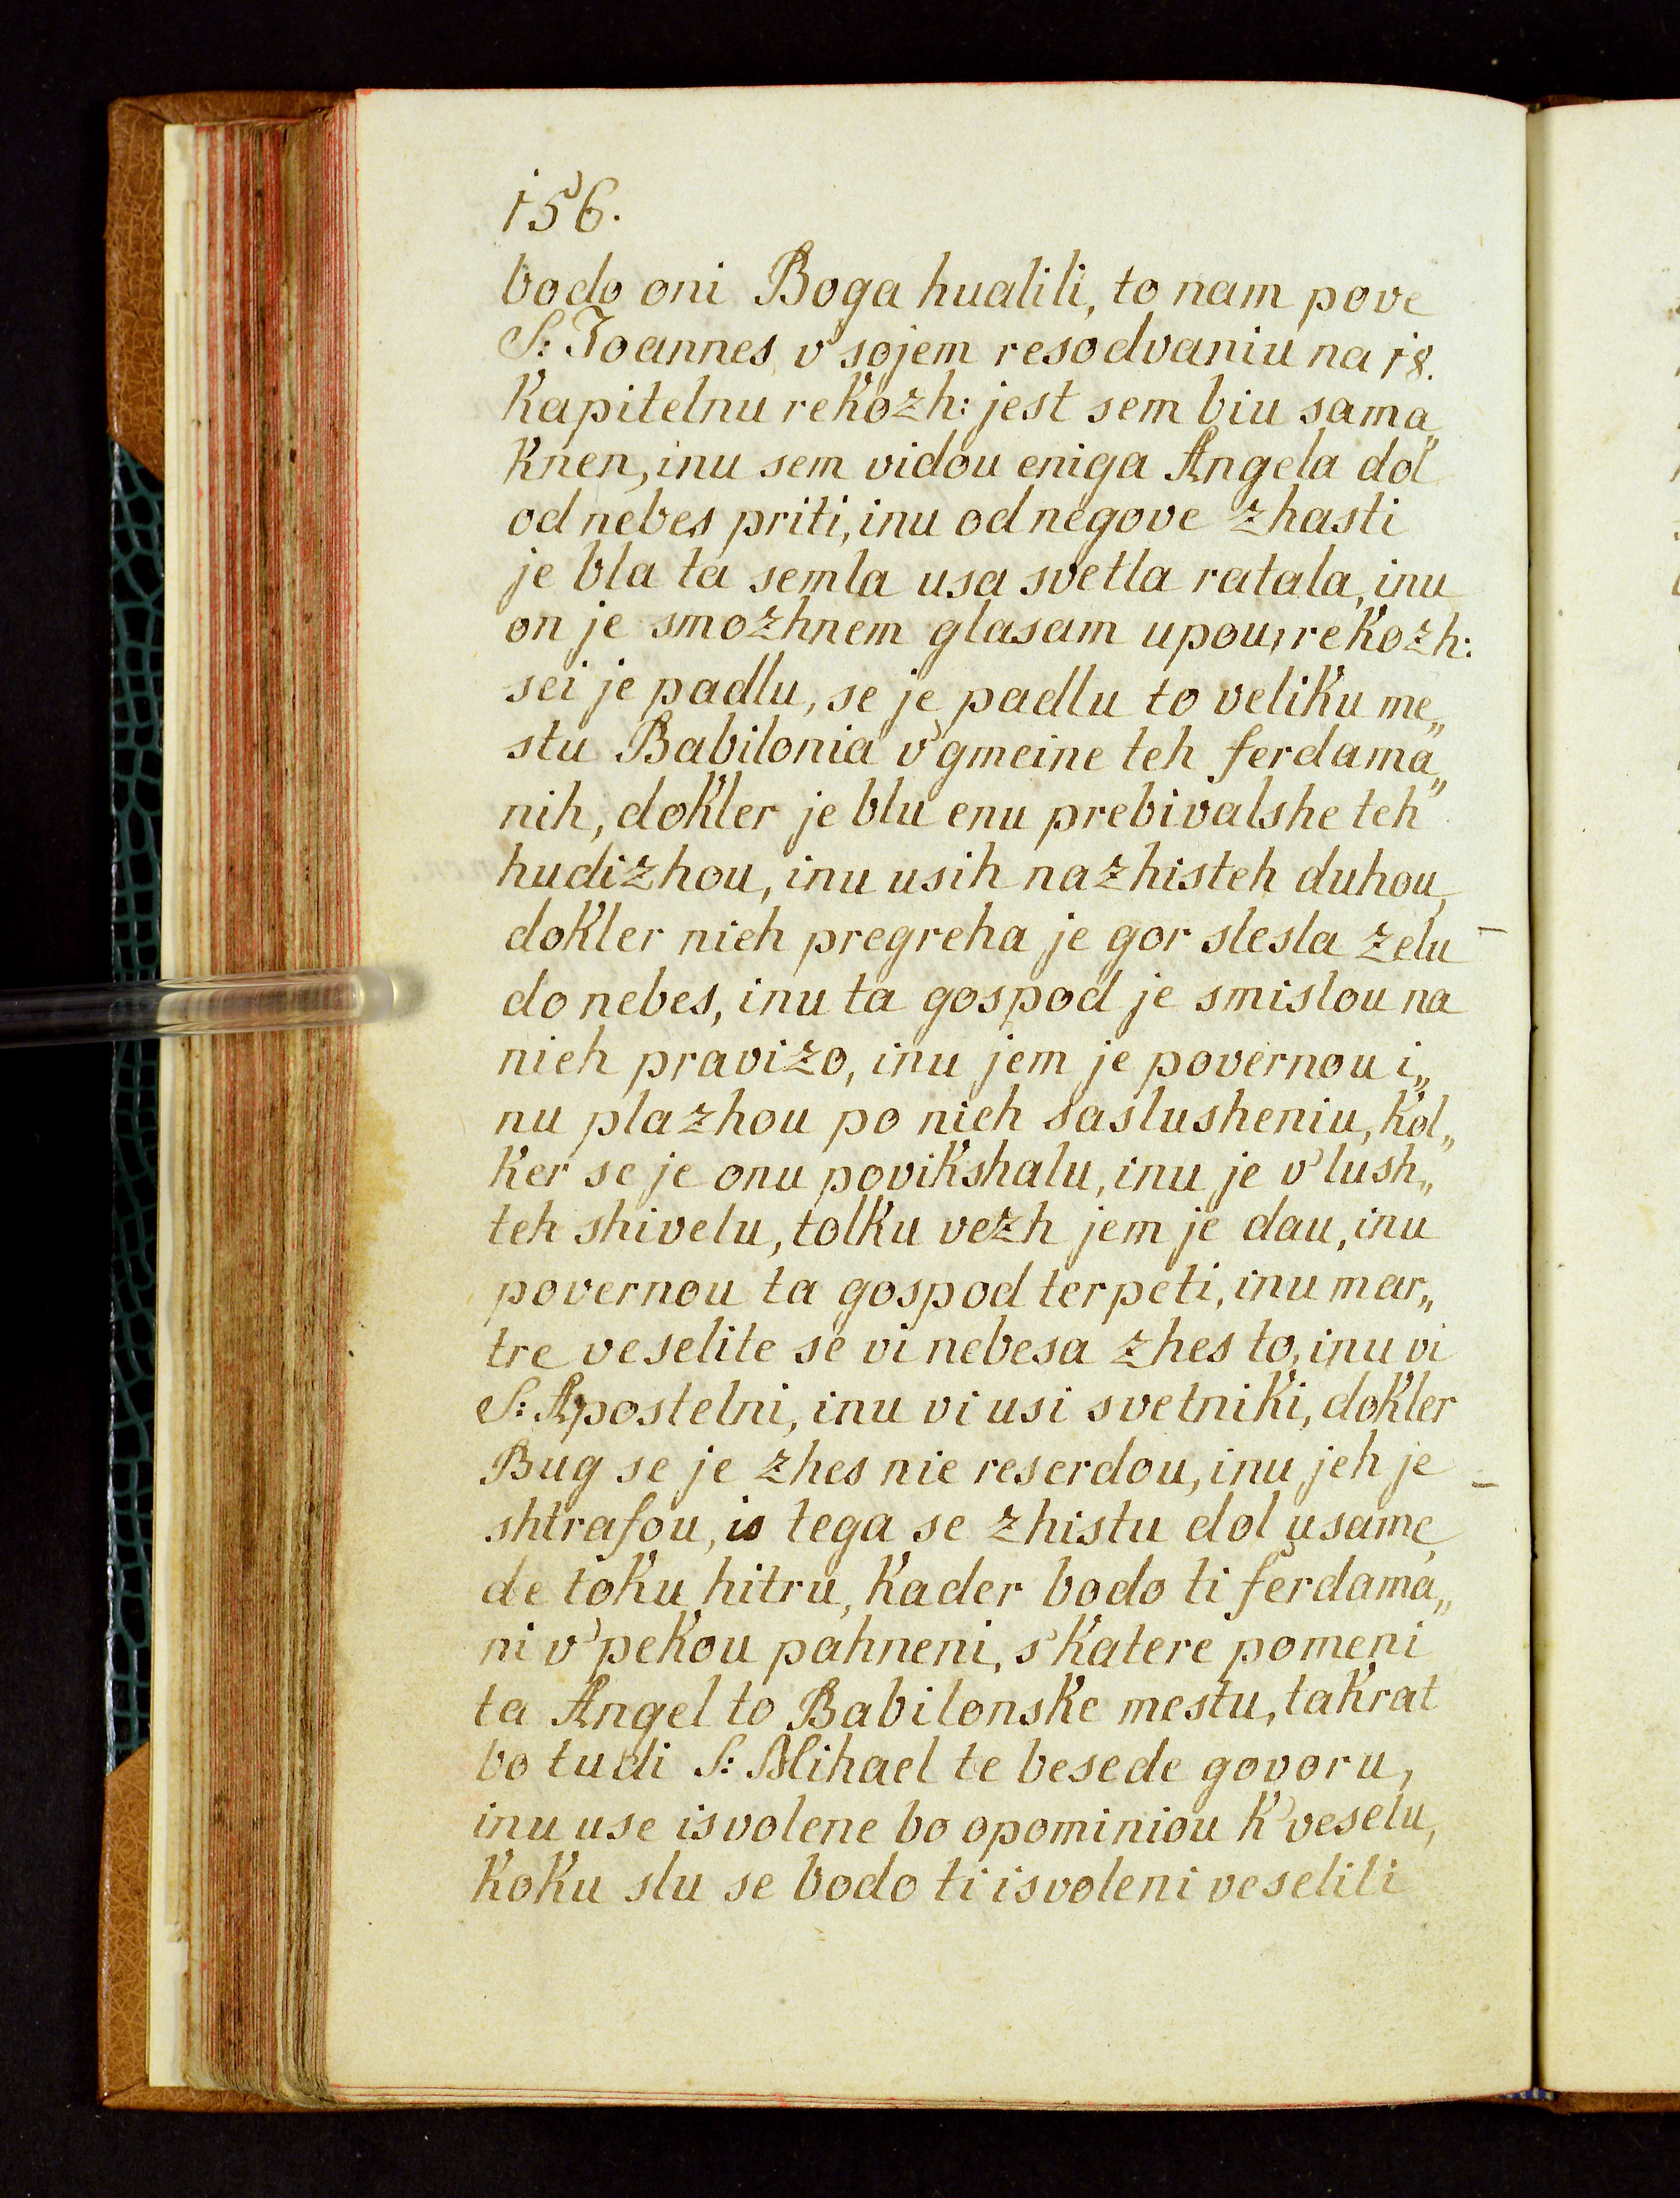 156.
bodo oni Boga hualili, to nam pove
S: Joannes v' sojem resodvaniu na 18.
kapitelnu rekozh: jest sem biu sama„
knen, inu sem vidou eniga Angela dol
od nebes priti, inu od negove zhasti
je bla ta semla usa svetla ratala, inu
on je smozhnem glasam upou, rekozh:
sei je padlu, se je padlu to veliku me„
stu Babilonia v' gmeine teh ferdama„
nih, dokler je blu enu prebivalshe teh
hudizhou, inu usih nazhisteh duhou,
dokler nieh pregreha je gor slesla zelu
do nebes, inu ta gospod je smislou na
nieh pravizo, inu jem je povernou i„
nu plazhou po nieh saslusheniu, kol„
ker se je onu povikshalu, inu je v' lush„
teh shivelu, tolku vezh jem je dau, inu
povernou ta gospod terpeti, inu mar„
tre veselite se vi nebesa zhes to, inu vi
S: Apostelni, inu vi usi svetniki, dokler
Bug se je zhes nie reserdou, inu jeh je
shtrafou, is tega se zhistu dol usame,
de toku hitru, kader bodo ti ferdama„
ni v' pekou pahneni, s' katere pomeni
ta Angel to Babilonske mestu, takrat
bo tudi S: Mihael te besede govoru,
inu use isvolene bo opominiou k' veselu,
koku slu se bodo ti isvoleni veselili